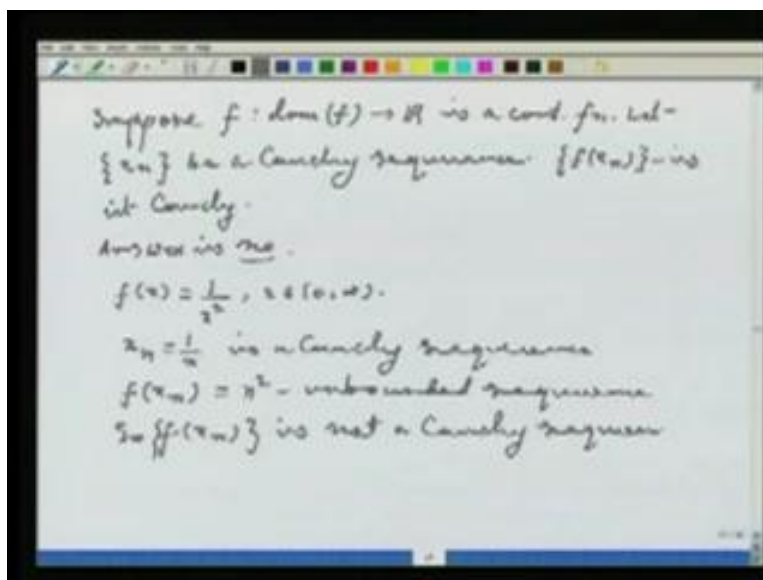 Suppose f : dom(f) → ℝ is a cont. fn. Let
{xₙ} be a Cauchy sequence. {f(xₙ)} - is
it Cauchy.
Answer is no.
f(x) = 1/x², x ∈ (0, ∞).
xₙ = 1/n is a Cauchy sequence
f(xₙ) = n² - unbounded sequence
So {f(xₙ)} is not a Cauchy sequen